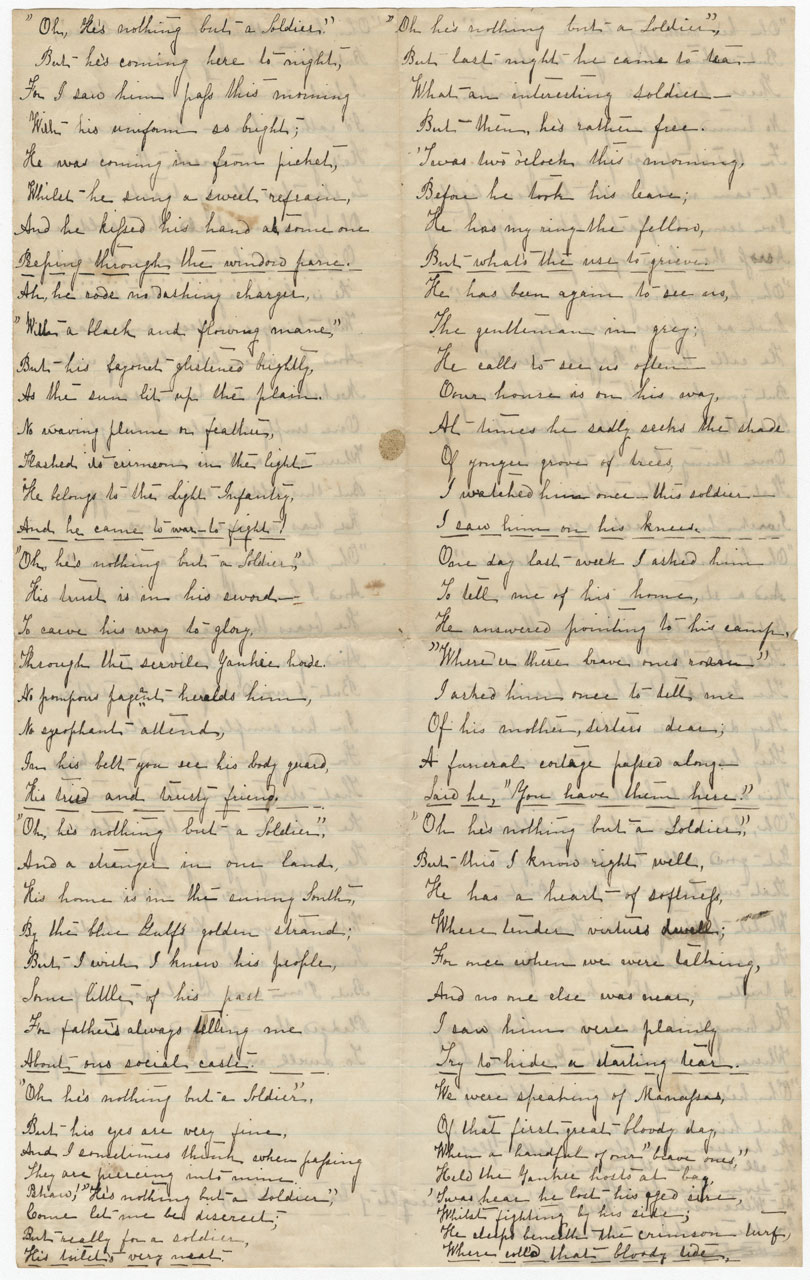 "Oh, He's nothing but a Soldier."
But he's coming here to night,
For I saw him pass this morning
With his uniform so bright;
He was coming in from picket,
Whilst he sung a sweet refrain,
And he kissed his hand at some one
Peeping through the window pane.
Ah, he rode no dashing charger,
"With a black and flowing mane,"
But his bayonet glistened brightly,
As the sun lit up the plain.
No waving plume or feather,
Flashed its crimson in the light
He belongs to the Light Infantry,
And he came to war to fight!
"Oh, he's nothing but a Soldier,"
His trust is in his sword
To carve his way to glory,
Through the servile Yankee horde.
No pompous pageant heralds him,
No sycophants attend,
In his belt you see his body guard,
His tried and trusty friend.
"Oh, he's nothing but a Soldier",
And a stranger in our land,
His home is in the sunny South,
By the blue Gulf's golden strand;
But I wish I knew his people,
Some little of his past
For father's always telling me
About our social caste.
"Oh he's nothing but a Soldier",
But his eyes are very fine,
And I sometimes think when passing
They are piercing into mine.
Pshaw! "He's nothing but a Soldier",
Come let me be discreet;
But really for a soldier,
His toilet's very neat.
"Oh he's nothing but a Soldier",
But last night he came to tea—
What an interesting soldier—
But then, he's rather free.
'Twas two o'clock this morning,
Before he took his leave;
He has my ring the fellow,
But what's the use to grieve.
He has been again to see us,
The gentleman in grey;
He calls to see us often
Our house is on his way,
At times he sadly seeks the shade
Of yonger grove of trees,
I watched him once this soldier—
I saw him on his knees.
One day last week I asked him
To tell me of his home,
He answered pointing to his camp,
"Where'er these brave ones roam"
I asked him once to tell me
Of his mother, sisters dear;
A funeral cortage passed along—
Said he, "You have them here."
"Oh he's nothing but a Soldier",
But this I know right well,
He has a heart of softness,
Where tender virtues dwell;
For once when we were talking,
And no one else was near,
I saw him very plainly
Try to hide a starting tear.
We were speaking of Manassas,
Of that first great bloody day,
When a handful of our "brave ones,"
Held the Yankee hosts at bay,
'Twas hear he lost his aged sire,
Whilst fighting by his side;
He sleeps beneath the crimson turf,
Where rolled that bloody tide,